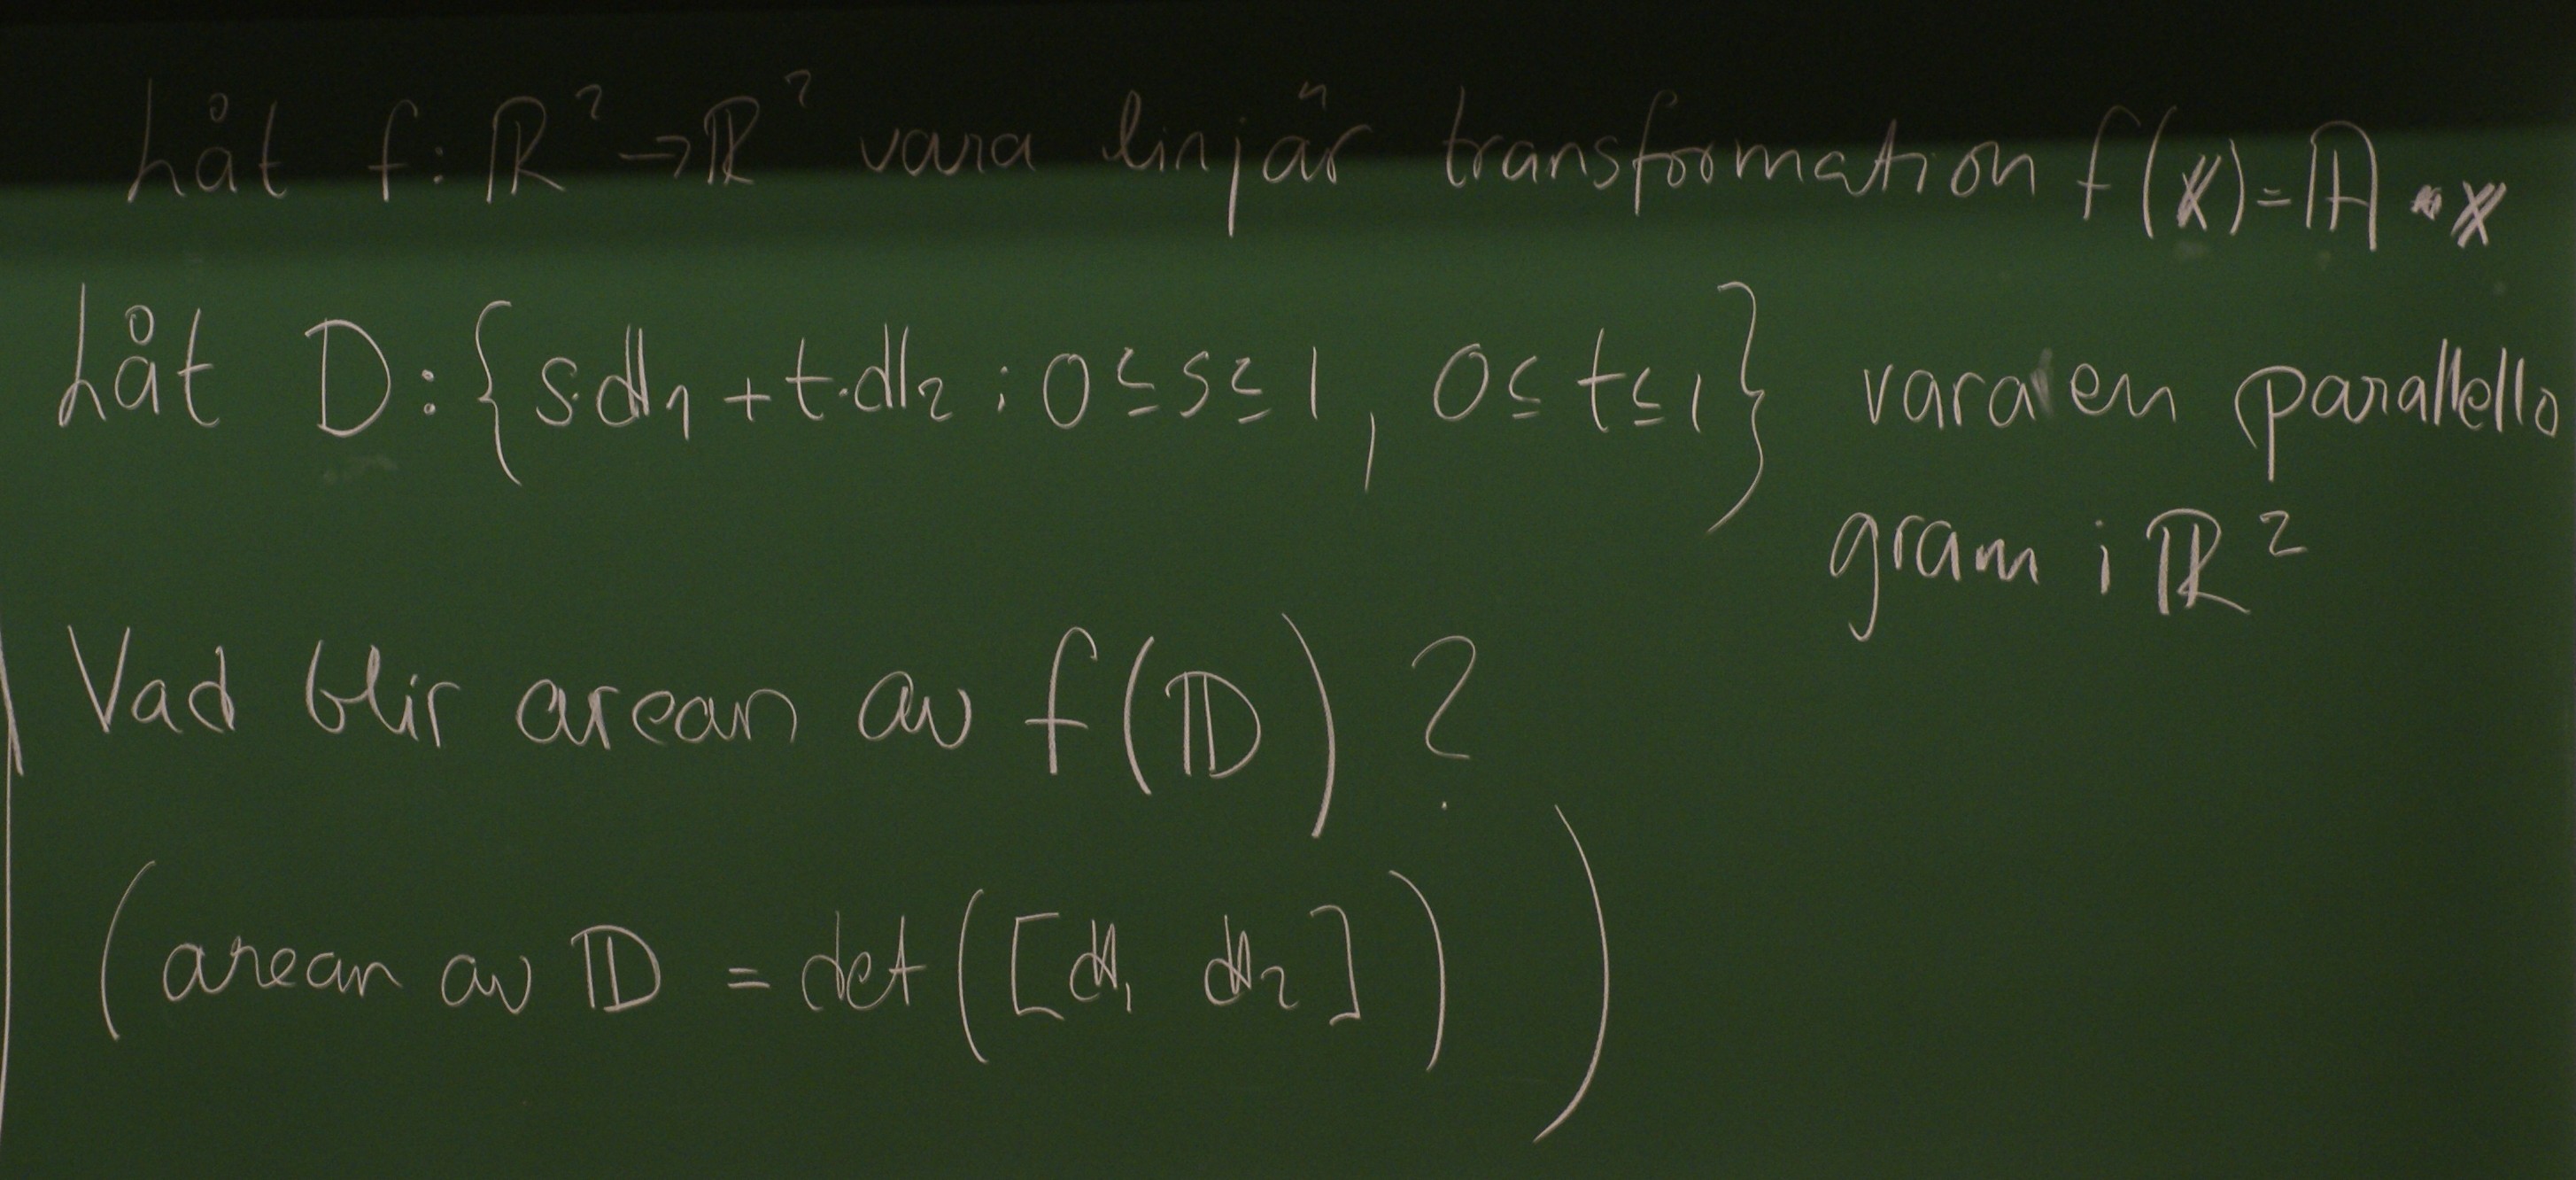 Låt f: ℝ² → ℝ² vara linjär transformation f(𝕩) = 𝔸 · 𝕩
Låt D: {s·𝕕₁ + t·𝕕₂ ; 0 ≤ s ≤ 1, 0 ≤ t ≤ 1} vara en parallello
gram i ℝ²
Vad blir arean av f(𝔻) ?
(arean av 𝔻 = det([𝕕₁ 𝕕₂]))